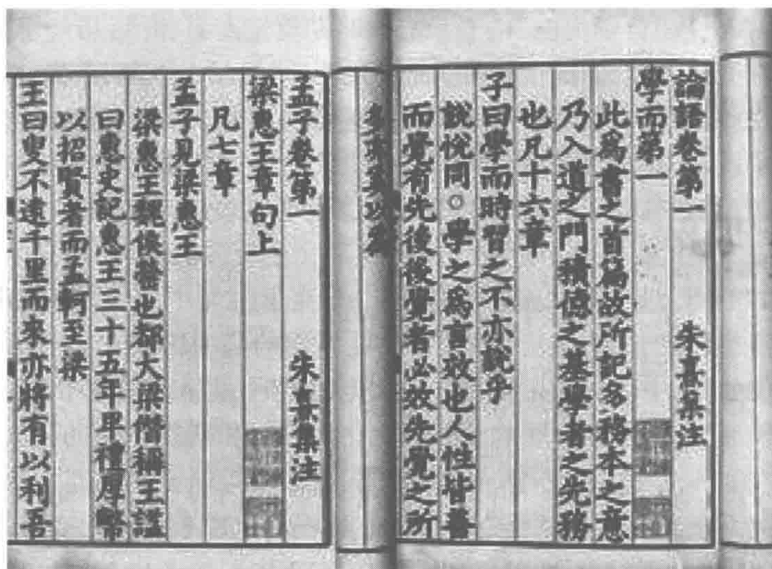 論語卷第一 朱熹集注
學而第一
此爲書之首篇故所記多務本之意
乃入道之門積德之基學者之先務
也凡十六章
子曰學而時習之不亦說乎
說悅同○學之爲言效也人性皆善
而覺有先後後覺者必效先覺之所
孟子卷第一 朱熹集注
梁惠王章句上
凡七章
孟子見梁惠王
梁惠王魏侯罃也都大梁僭稱王諡
曰惠史記惠王三十五年卑禮厚幣
以招賢者而孟軻至梁
王曰叟不遠千里而來亦將有以利吾